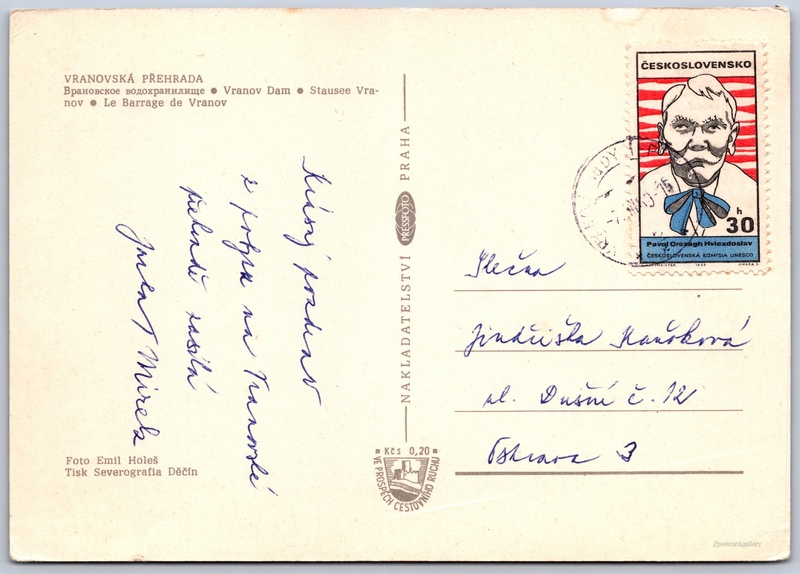 VRANOVSKÁ PŘEHRADA
Врановское водохранилище ● Vranov Dam ● Stausee Vra-
nov ● Le Barrage de Vranov
Krásný pozdrav
z pobytu na Vranovské
přehradě zasílá
Mirek
Foto Emil Holeš
Tisk Severografia Děčín
NAKLADATELSTVÍ PRESSFOTO PRAHA
Kčs 0,20
VE PROSPĚCH CESTOVNÍHO RUCHU
ČESKOSLOVENSKO
h
30
Pavol Országh Hviezdoslav
ČESKOSLOVENSKÁ KOMISIA UNESCO
Slečna
Jindřiška
ul. Dušní č. 12
Ostrava 3